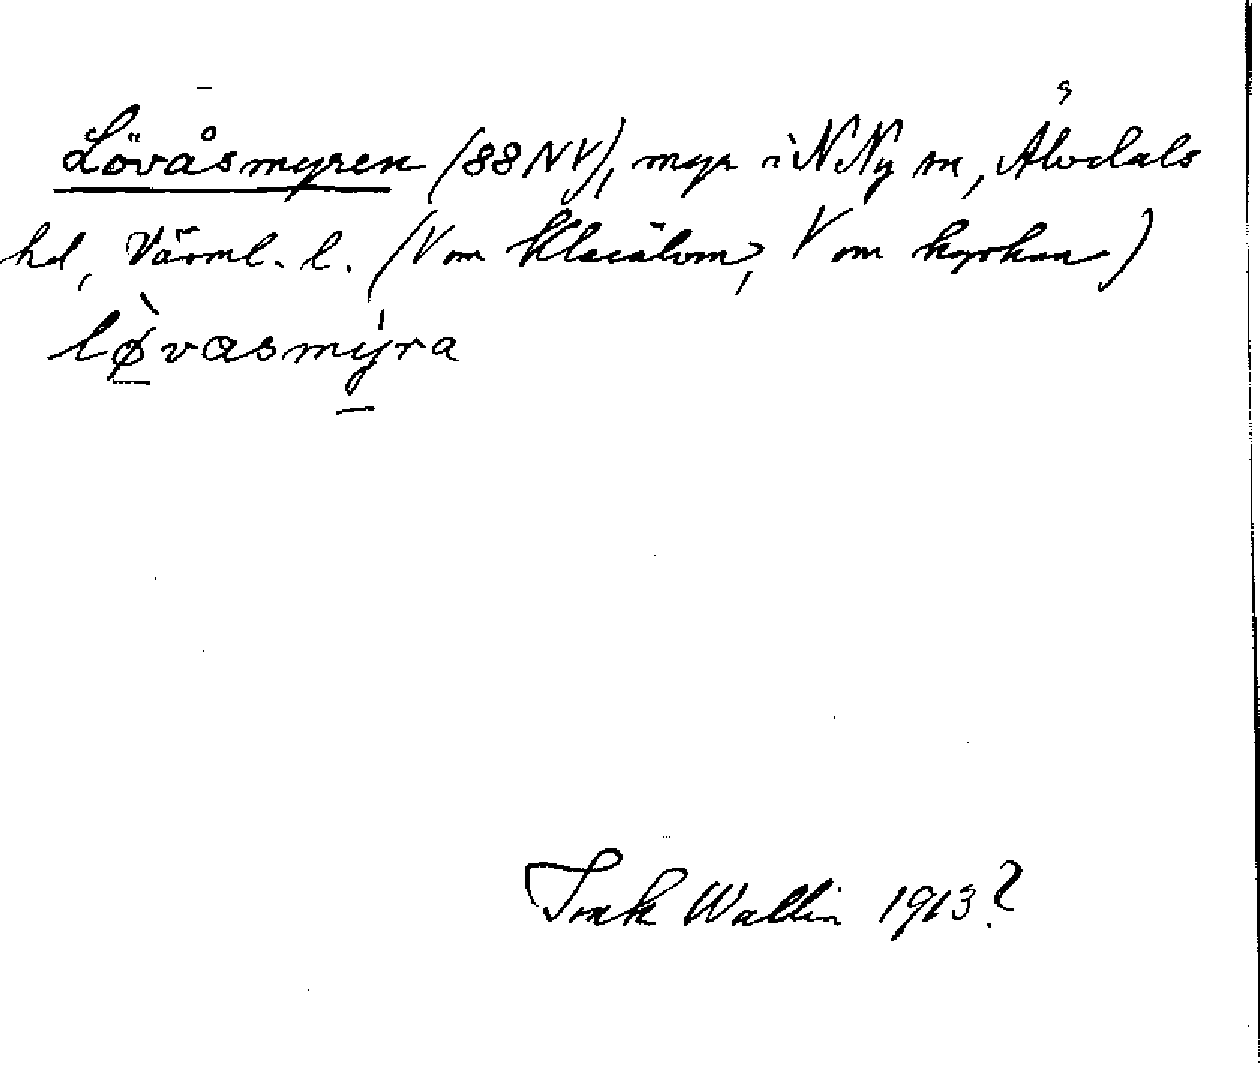 Lövåsmyren (88 NV), myr i N Ny sn, Älvdals
hd, Värml. l. (V om Klarälven, V om kyrkan)
lø̀vasmýra
Wallin 1913?